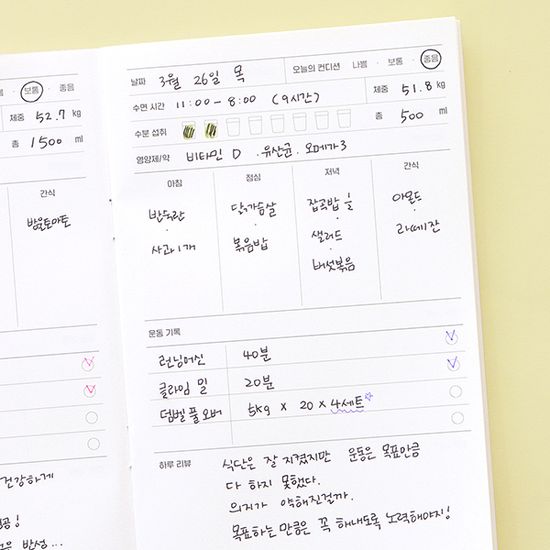 보통 · 좋음
체중 52.7 kg
총 1500 ml
간식
방울토마토
건강하게
날짜 3월 26일 목 오늘의 컨디션 나쁨 · 보통 · 좋음
수면 시간 11:00 - 8:00 (9시간) 체중 51.8 kg
수분 섭취 총 500 ml
영양제/약 비타민 D . 유산균. 오메가3
아침 점심 저녁 간식
반숙란 닭가슴살 잡곡밥 ½ 아몬드
사과 1개 볶음밥 샐러드 라떼 1잔
버섯볶음
운동 기록
런닝머신 40분
클라임 밀 20분
덤벨 풀 오버 5kg x 20 x 4세트
하루 리뷰 식단은 잘 지켰지만 운동은 목표만큼
다 하지 못했다.
의지가 약해진걸까.
목표하는 만큼은 꼭 해내도록 노력해야지!